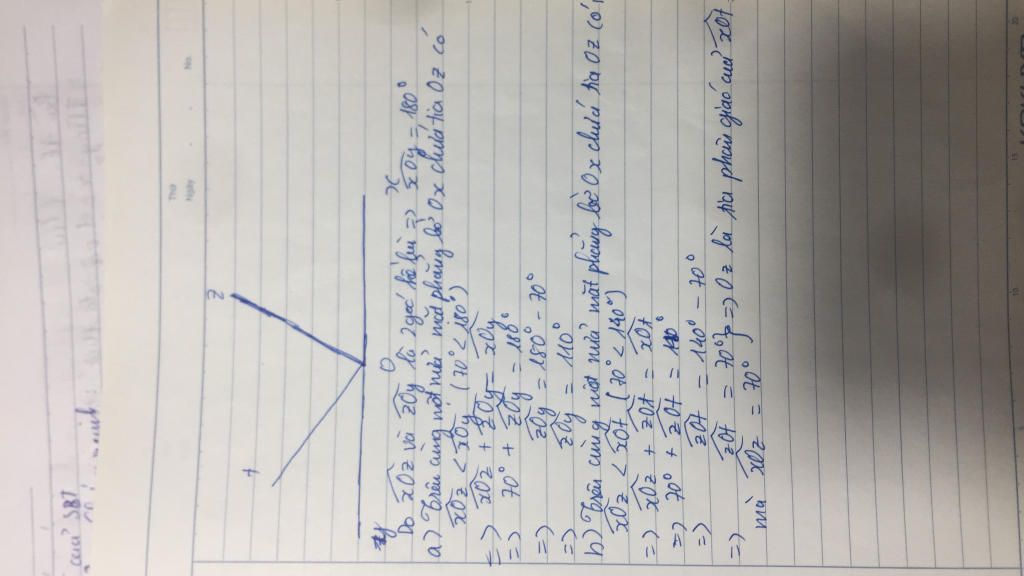 Thứ
Ngày
No.
z
t
O
x
y
Do xOz và zOy là 2 góc kề bù => xOy = 180°
a) Trên cùng một nửa mặt phẳng bờ Ox chứa tia Oz có
xOz < xOy (70° < 180°)
=> xOz + zOy = xOy
=> 70° + zOy = 180°
=> zOy = 180° - 70°
=> zOy = 110°
b) Trên cùng một nửa mặt phẳng bờ Ox chứa tia Oz có
xOz < xOt (70° < 140°)
=> xOz + zOt = xOt
=> 70° + zOt = 140°
=> zOt = 140° - 70°
=> zOt = 70° } => Oz là tia phân giác của xOt
mà xOz = 70°
của SBT